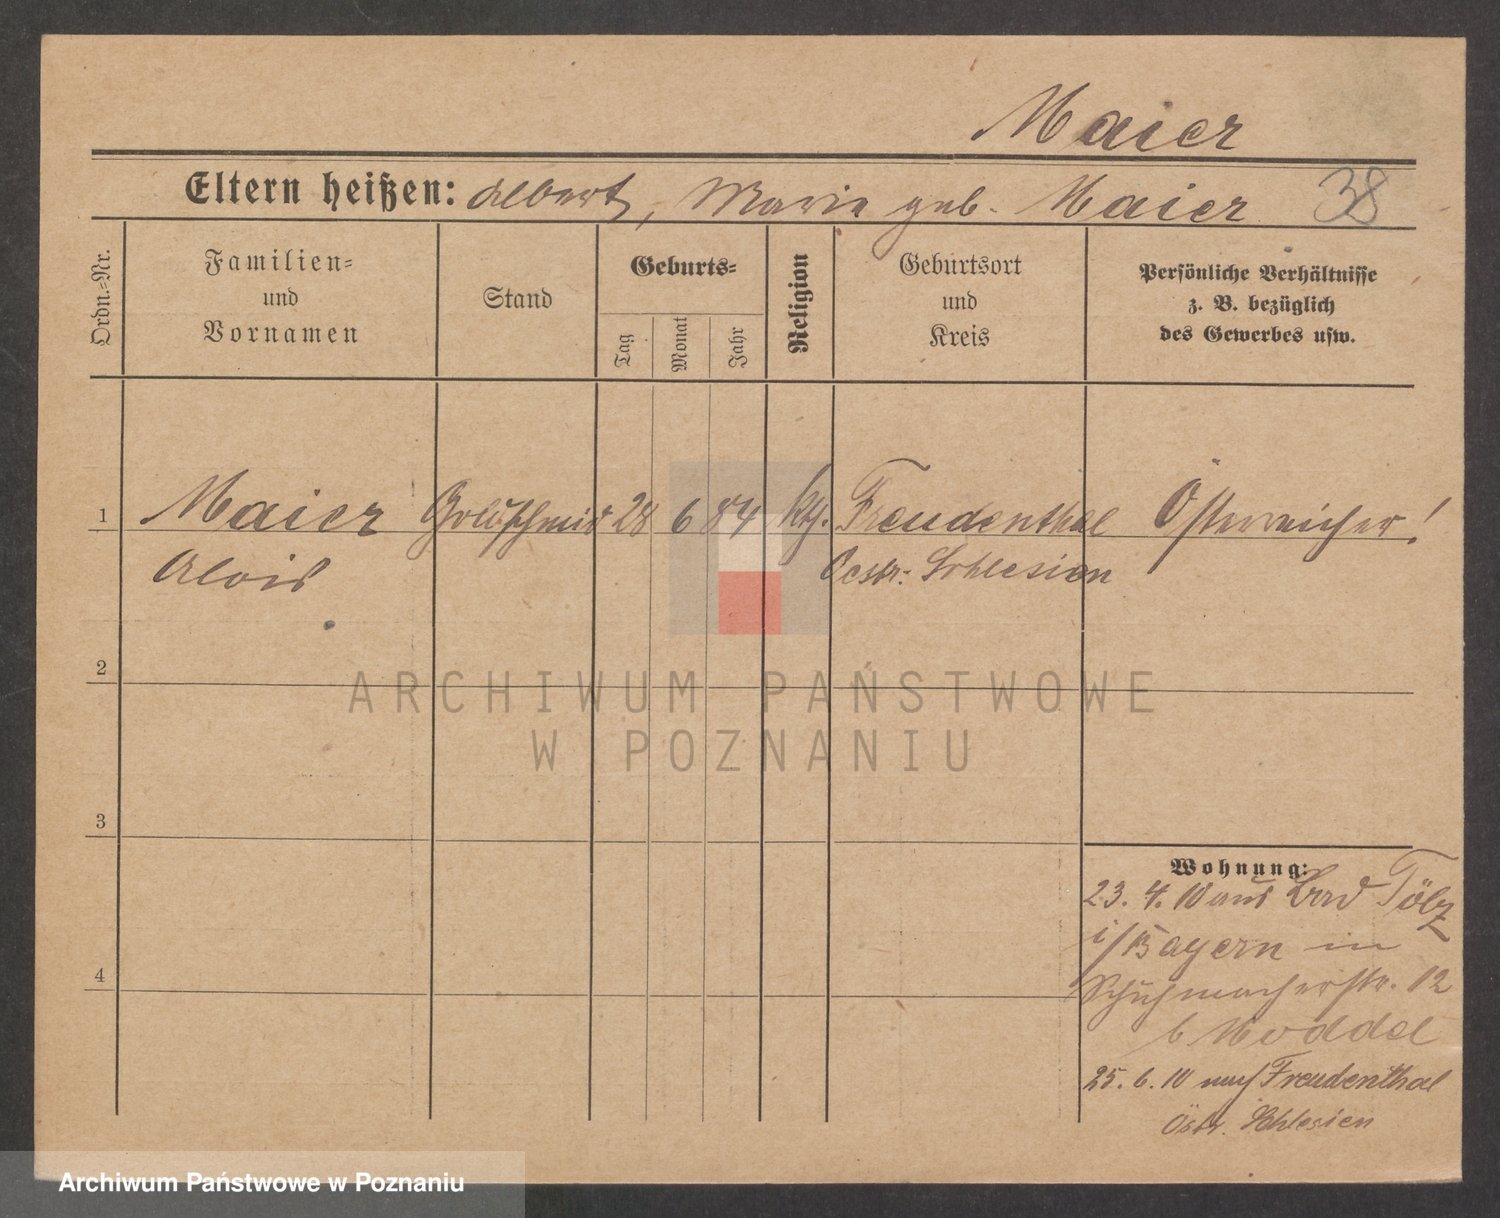 Maier
Eltern heißen: Albert, Marie geb. Maier 38
Ordn.-Nr.
Familien-
und
Vornamen
Stand
Geburts-
Tag
Monat
Jahr
Religion
Geburtsort
und
Kreis
Persönliche Verhältnisse
z. B. bezüglich
des Gewerbes usw.
1 Maier Goldschmid 28 6 84 kth. Freudenthal Österreicher!
Alois Oestr. Schlesien
2
3
4
Wohnung:
23. 4. 10 aus Bad Tölz
i/Bayern in
Schuhmacherstr. 12
b Moddel
25. 6. 10 nach Freudenthal
Östr. Schlesien
ARCHIWUM PAŃSTWOWE
W POZNANIU
Archiwum Państwowe w Poznaniu